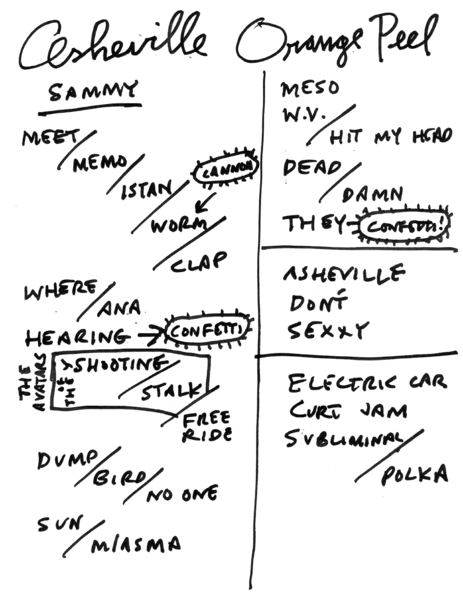 Asheville Orange Peel
SAMMY
MEET/
MEMO/
CANNON
ISTAN/
WORM/
CLAP
WHERE/
ANA
HEARING → CONFETTI
THE AVATARS
OF THE > SHOOTING/
STALK/
FREE RIDE
DUMP/
BIRD/
NO ONE
SUN/
MIASMA
MESO
W.V./
HIT MY HEAD
DEAD/
DAMN
THEY-CONFETTI!
ASHEVILLE
DON'T
SEXXY
ELECTRIC CAR
CURT JAM
SUBLIMINAL/
POLKA